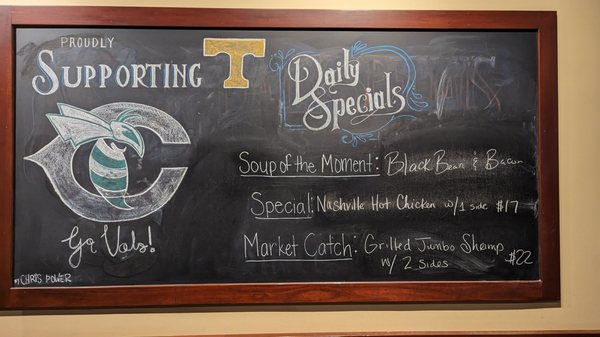 PROUDLY
SUPPORTING
T
C
Go Vols!
BY CHRIS POWER
Daily
Specials
Soup of the Moment: Black Bean & Bacon
Special: Nashville Hot Chicken w/1 side $17
Market Catch: Grilled Jumbo Shrimp
w/ 2 sides $22